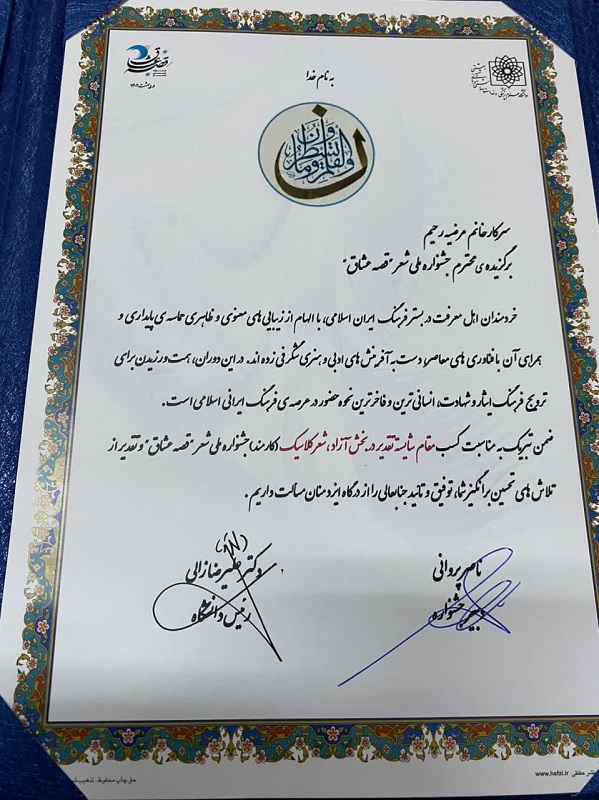 به نام خدا
قصه عشاق
اردیبهشت ۱۴۰۳
ن والقلم و ما یسطرون
سرکار خانم مرضیه رحیم
برگزیده‌ی محترم جشنواره ملی شعر "قصه عشاق"
خردمندان اهل معرفت در بستر فرهنگ ایران اسلامی، با الهام از زیبایی های معنوی و ظاهری حماسه‌ی پایداری و
همراهی آن با فناوری های معاصر، دست به آفرینش های ادبی و هنری شگرفی زده اند. در این دوران، همت ورزیدن برای
ترویج فرهنگ ایثار و شهادت، انسانی ترین و فاخرترین نحوه حضور در عرصه‌ی فرهنگ ایرانی اسلامی است.
ضمن تبریک به مناسبت کسب مقام شایسته تقدیر در بخش آزاد، شعر کلاسیک (کارمند) جشنواره ملی شعر "قصه عشاق" و تقدیر از
تلاش های تحسین برانگیز شما، توفیق و تایید جنابعالی را از درگاه ایزد منان مسالت داریم.
ناصر پروانی
دبیر جشنواره
دکتر علیرضا زالی
رئیس دانشگاه
حق چاپ محفوظ.
www.hefzi.ir نشر حفظی